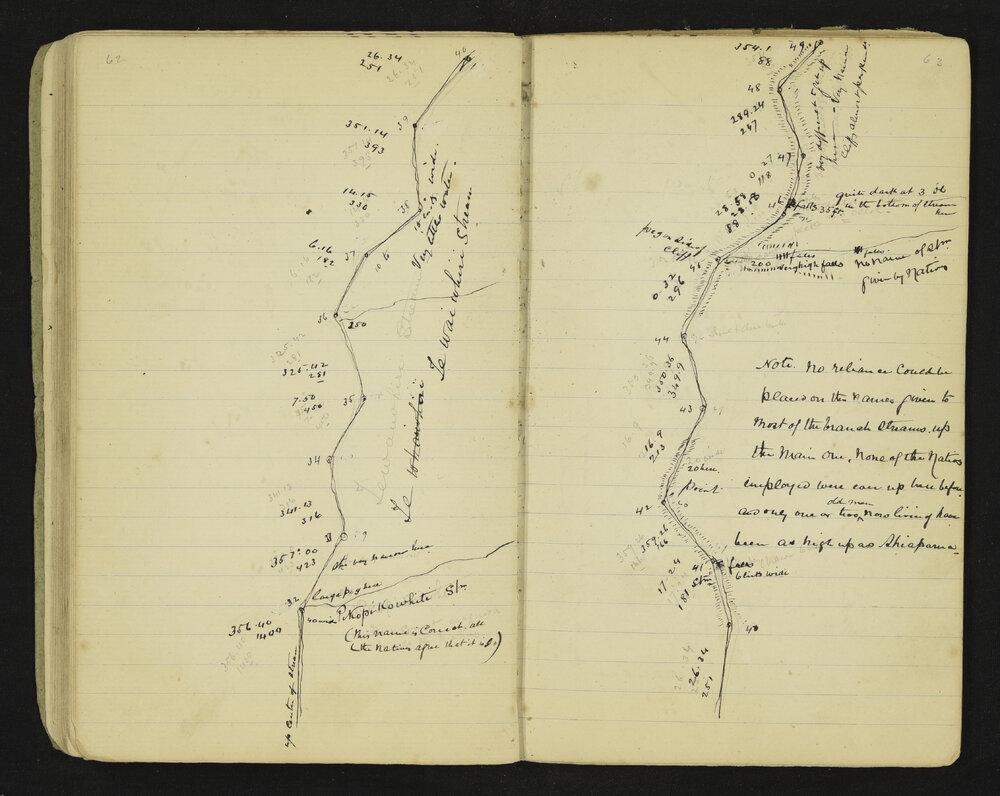 62
26.34
251
40
39
351.14
393
10 links wide.
Very little water.
14.15
330
38
Te Waiwhiri Stream
6.16
182
37
106
36
250
325.42
281
7.50
450
35
Te
34
341.13
316
357°.00
423
very narrow here
32
large peg here
Kopikowhite Stm
356.40
1409
(This name is Correct, all
(the Natives agree that it is so)
up Centre of Stream
63
354.1
88
49
48
very difficult to get up
here - Very narrow
Cliffs almost perpend.
289.24
247
47
27
0
118
quite dark at 3 Oc
in the bottom of stream
here
falls 35 ft.
28.58
88
peg on side of
Cliff
46
200
falls
very high falls
falls
No name of Stm
given by Natives
0.32
296
44
350.36
349.9
Note. No reliance Could be
placed on the Names given to
Most of the branch Streams up
the Main One, None of the Natives
employed were ever up here before
old men
and only one or two, Now living have
been as high up as
43
16.9
213
20 here
Point
42
359.26
166
41
falls
6 links wide
17.24
181
Stm
40
26.34
251